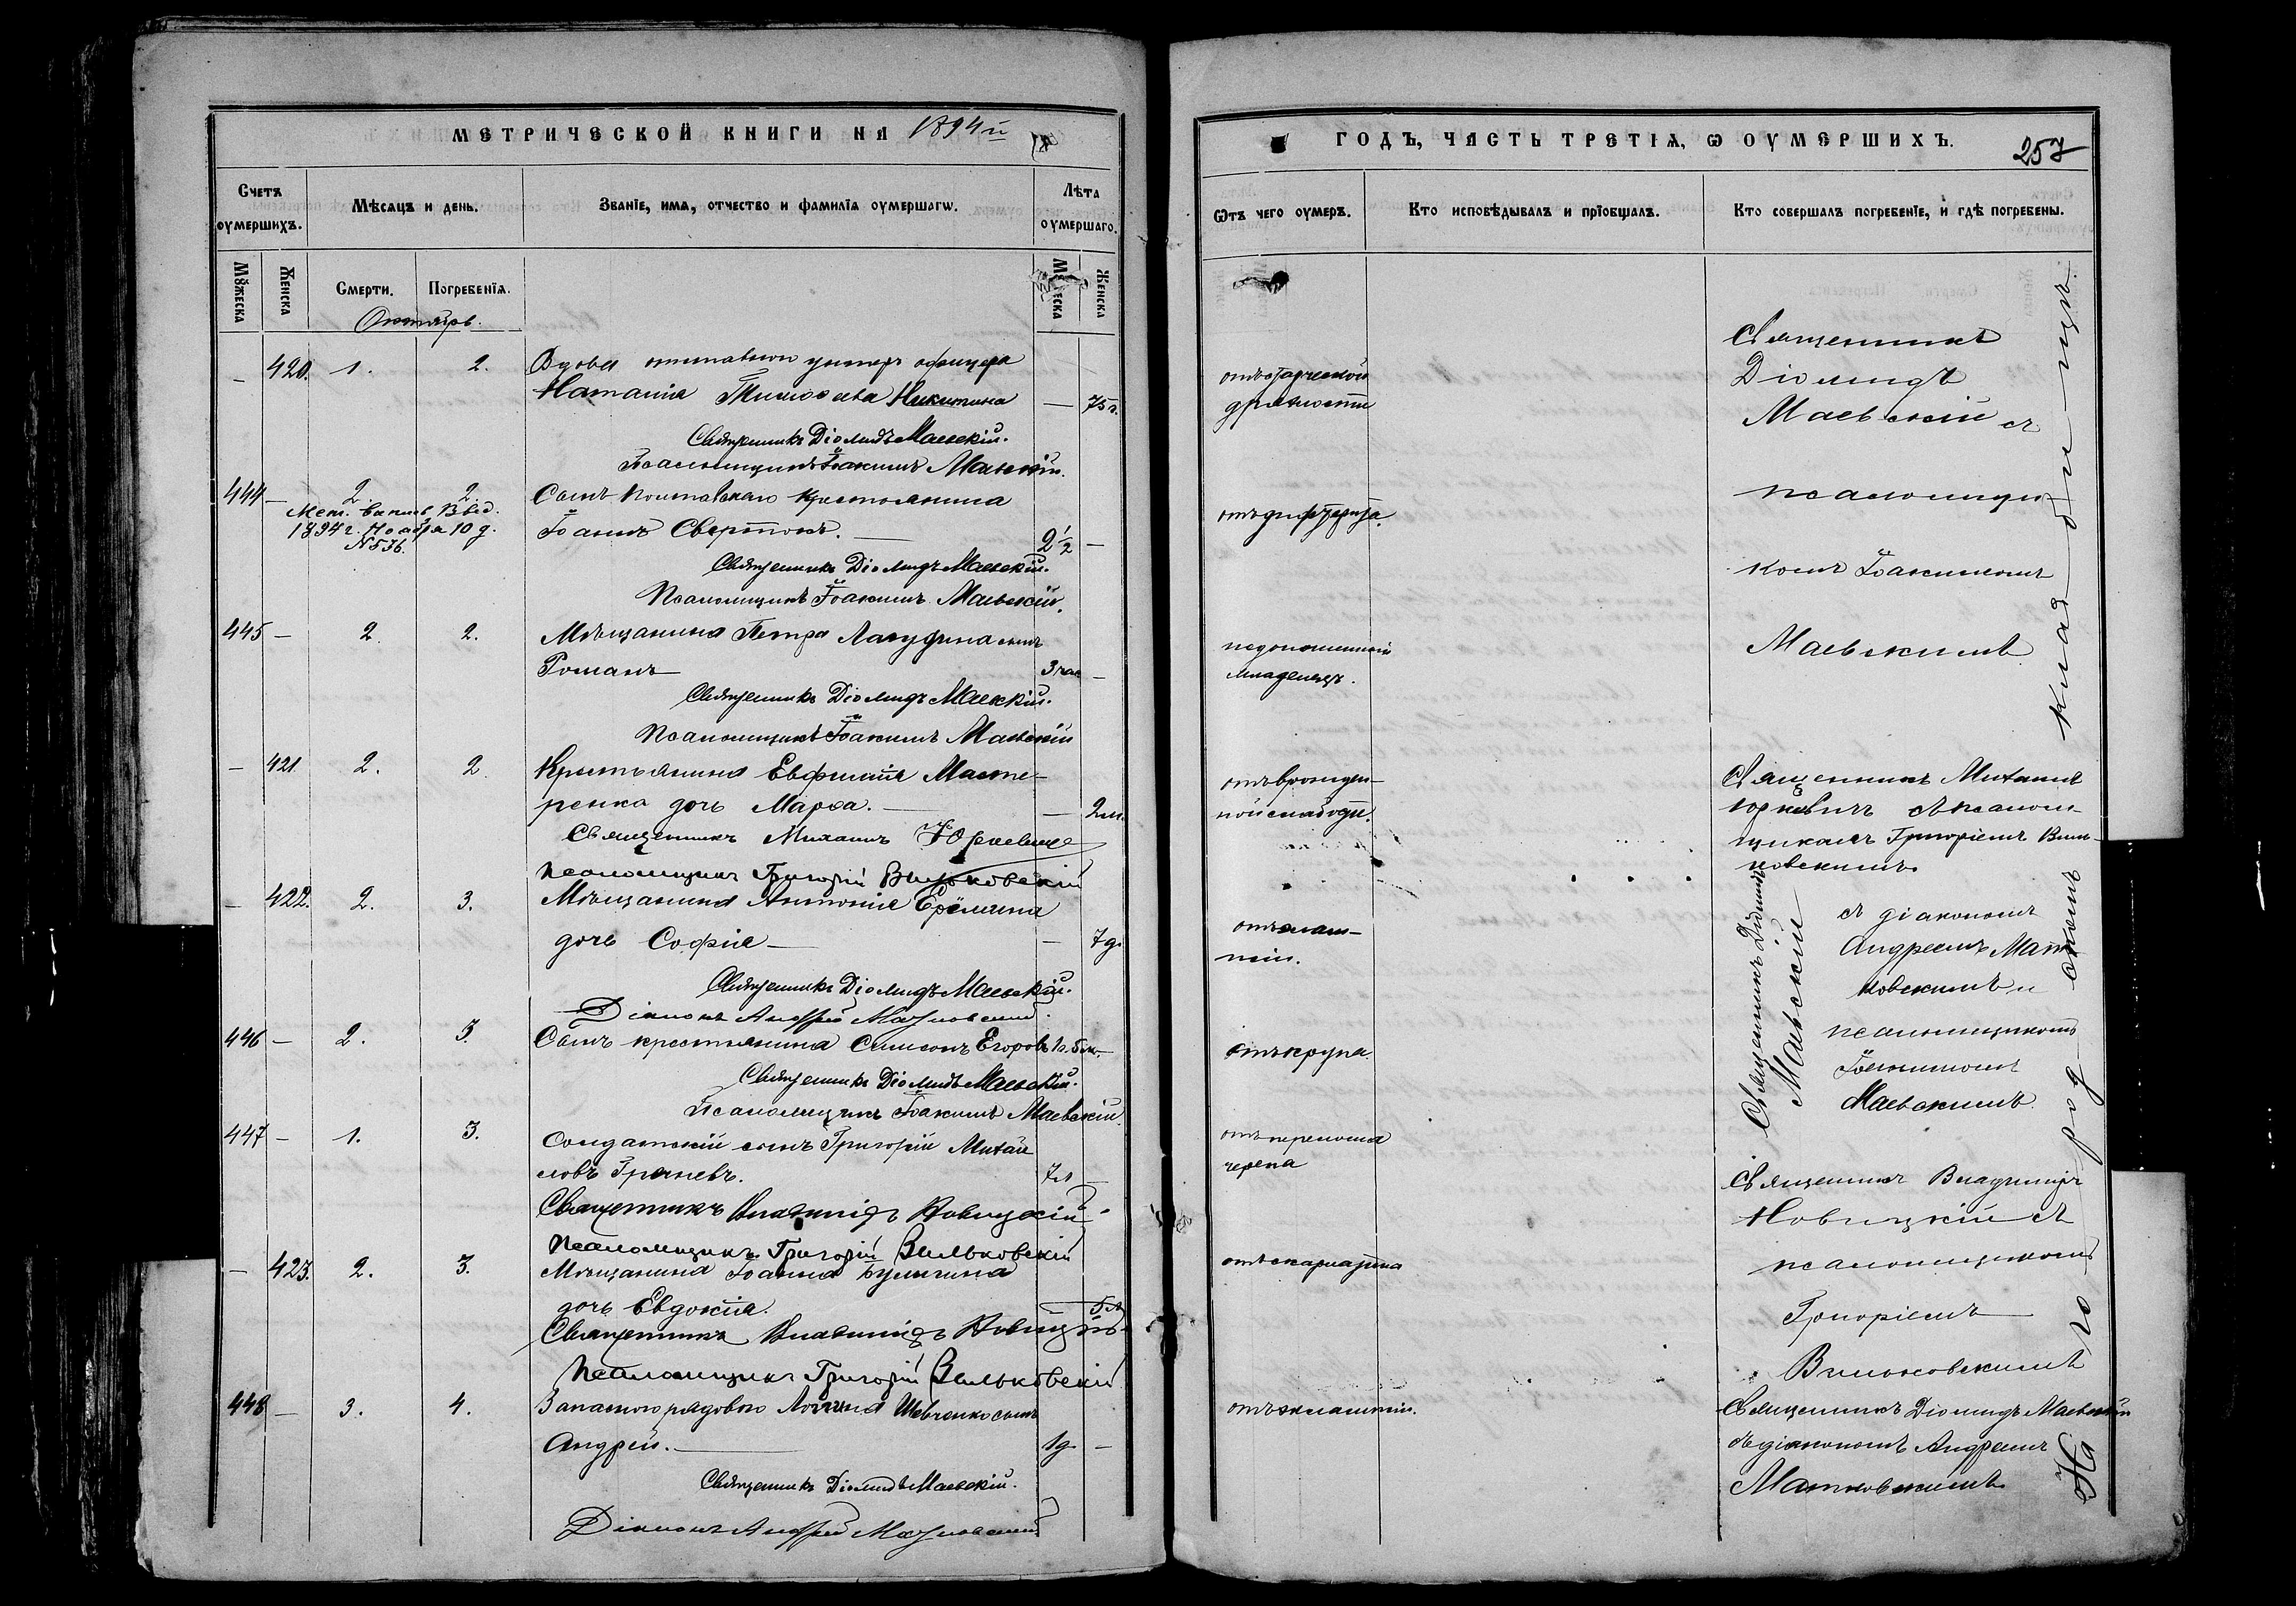 МЕТРИЧЕСКОЙ КНИГИ НА 1894й
Счетъ оумершихъ.
Мѣсяцъ и день.
Званіе, имя, отчество и фамилія оумершагѡ.
Лѣта оумершаго.
Мꙋжеска
Женска
Смерти.
Погребенія.
Женска
Октябрь.
— 420. 1. 2. Вдова отставного унтеръ офицера
Наталія Тимофеева Никитина — 75 г.
Священникъ Діомидъ Маевскій.
Псаломщикъ Іоакимъ Маевскій.
444 — 2. 2. Сынъ Полтавскаго крестьянина
Мет. выпись выд.
1894 г. Ноября 10 д.
№ 536.
Іоаннъ Свертокъ. — 2½ —
Священникъ Діомидъ Маевскій.
Псаломщикъ Іоакимъ Маевскій.
445 — 2. 2. Мѣщанина Петра сынъ
Романъ — 3 час —
Священникъ Діомидъ Маевскій.
Псаломщикъ Іоакимъ Маевскій
— 421. 2. 2. Крестьянина Евфимія Масте-
ренка дочь Марѳа. — 2 м.
Священникъ Михаилъ Юркевичъ
Псаломщикъ Григорій Вильковскій
— 422. 2. 3. Мѣщанина Антонія Ерёмина
дочь Софія — 7 д.
Священникъ Діомидъ Маевскій.
Діаконъ Андрей Матковский.
446 — 2. 3. Сынъ крестьянина Симеонъ Егоровъ 1 г. 5 м. —
Священникъ Діомидъ Маевскій.
Псаломщикъ Іоакимъ Маевскій.
447 — 1. 3. Солдатскій сынъ Григорій Михай
ловъ 7 л —
Священникъ Владиміръ Новицкій
Псаломщикъ Григорій Вильковскій
— 423. 2. 3. Мѣщанина Іоанна
дочь Евдокія. — 5 л
Священникъ Владиміръ Новицкій
Псаломщикъ Григорій Вильковскій
448 — 3. 4. Запасного рядового Шевченко сынъ
Андрей. — 1 д —
Священникъ Діомидъ Маевскій.
Діаконъ Андрей Матковский
ГОДЪ, ЧАСТЬ ТРЕТІѦ, Ѡ ОУМЕРШИХЪ.
257
Ѿтъ чего оумеръ.
Кто исповѣдывалъ и пріобщалъ.
Кто совершалъ погребеніе, и гдѣ погребены.
отъ старческой
дряхлости
отъ дифтерита.
недоношенный
младенецъ.
отъ врожден-
ной слабости.
отъ эклам-
псіи.
отъ крупа.
отъ перелома
черепа
отъ скарлатины
отъ эклампсіи.
Священникъ
Діомидъ
Маевскій съ
псаломщи
комъ Іоакимомъ
Маевскимъ
Священникъ Михаилъ
Юркевичъ съ псалом-
щикомъ Григоріемъ Виль-
ковскимъ.
Священникъ Діомидъ
Маевскій
съ діакономъ
Андреемъ Мат
ковскимъ и
псаломщикомъ
Іоакимомъ
Маевскимъ.
Священникъ Владиміръ
Новицкій съ
псаломщикомъ
Григоріемъ
Вильковскимъ
Священникъ Діомидъ Маевскій
съ діакономъ Андреемъ
Матковскимъ
На городскомъ кладбищѣ.